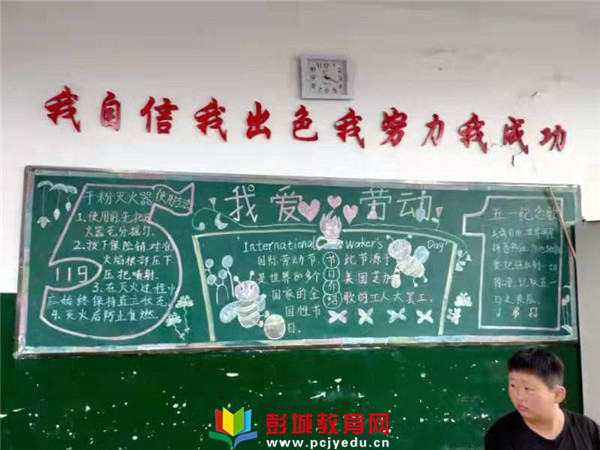 我自信我出色我努力我成功
干粉灭火器
使用方法
1.使用前先把灭
火器充分摇匀.
2.拔下保险销,对准
火焰根部压下
压把喷射.
3.在灭火过程中
应始终保持直立状态
4.灭火后防止复燃.
119
5
我爱劳动
International Worker's Day!
国际劳动节,
是世界80多个
国家的全
国性节
日.
节
日
此节源于
美国芝加
歌的工人大罢工.
1
五一纪念
彭城教育网
www.pcjyedu.cn